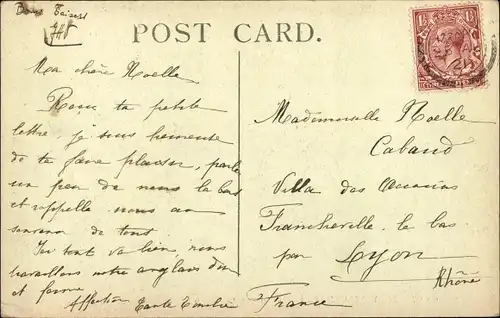 POST CARD.
Ma chère Noelle
Reçu ta petite
lettre, je suis heureuse
de te faire plaisir, parle
un peu de nous là bas
et rappelle nous au
souvenir de tous.
Ici tout va bien nous
travaillons notre anglais dur
et ferme
Affection Tante
Mademoiselle Noelle
Cabaud
Villa des Acacias
Francheville le bas
par Lyon
Rhône
France